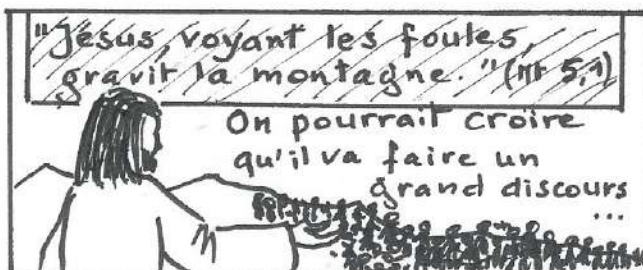 "Jésus, voyant les foules,
gravit la montagne." (Mt 5,1)
On pourrait croire
qu'il va faire un
grand discours
...